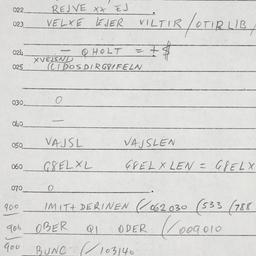 022 REJVE XX EJ
023 VELXE EJER VILTIR / OTIRLIB /
024 — QHOLT = + $
XVELSNL
025 (C) DOSDIRG8IFELN
030 O
040 —
050 VAJSL VAJSLEN
060 G8ELXL G8ELXLEN = G8ELX
070 O
900 IMIT+ DERINEN (/062030 (533 (788
906 OBER QI ODER (/009010
900 BUNG (/103140